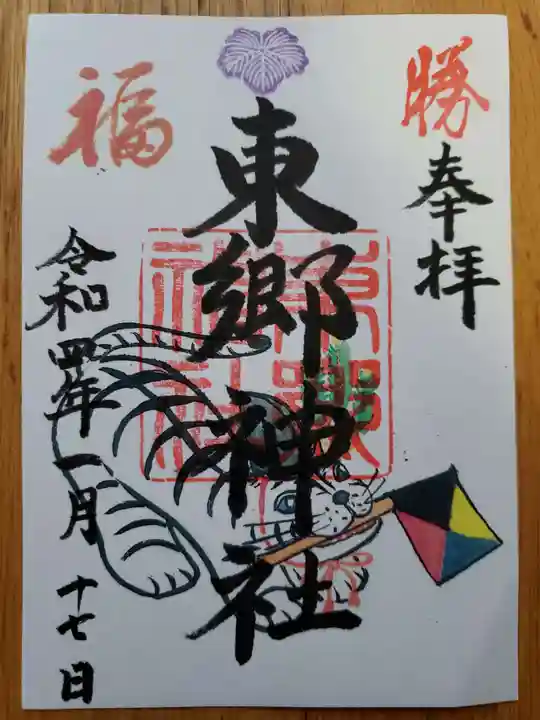 勝
奉拝
東郷神社
福
令和四年一月十七日
東郷神社